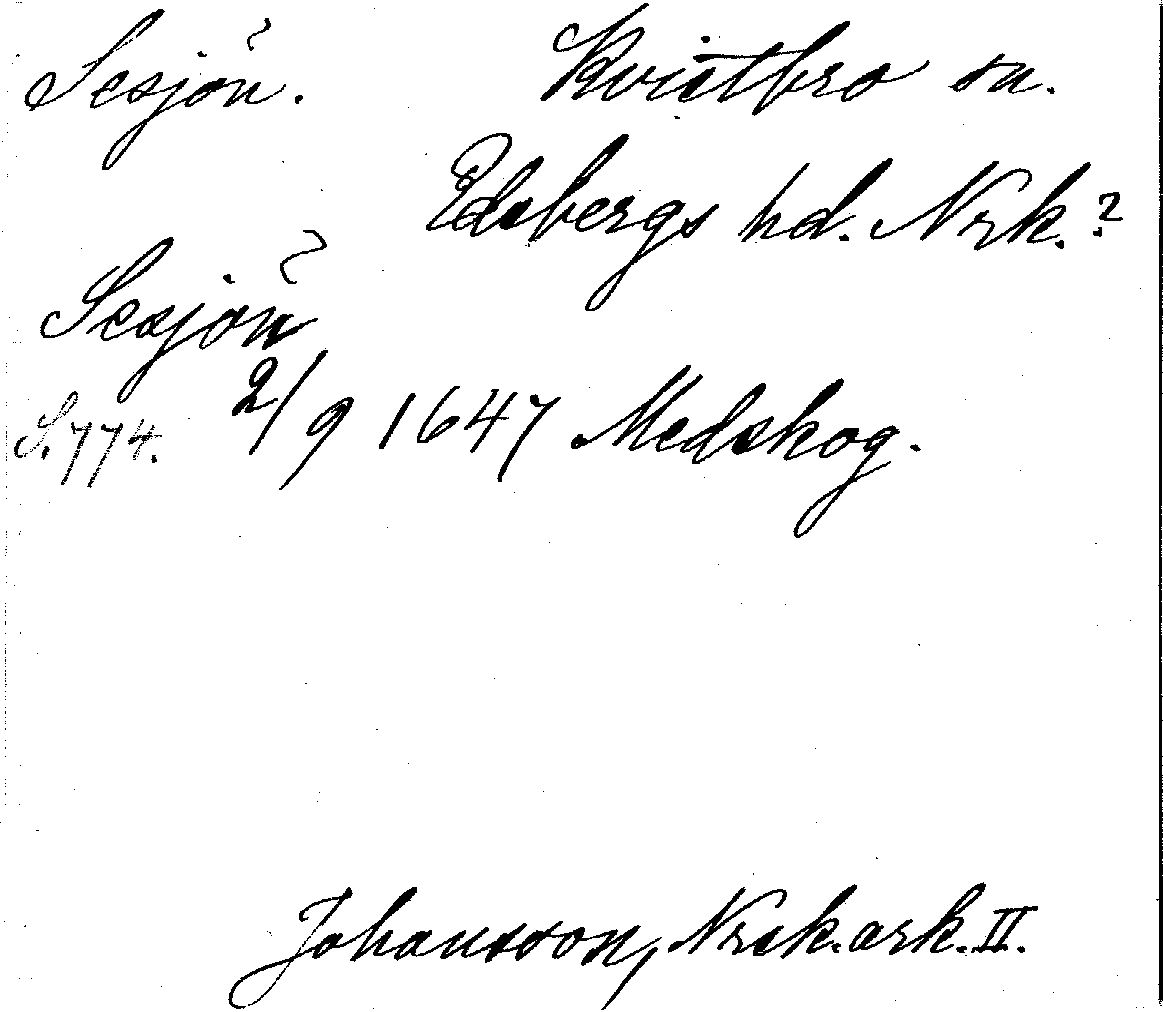 Sesjön. Kvistbro sn.
Edsbergs hd. Nrk.?
Sesjön
S. 774. 2/9 1647 Medskog.
Johansson, Nrsk. ark. II.